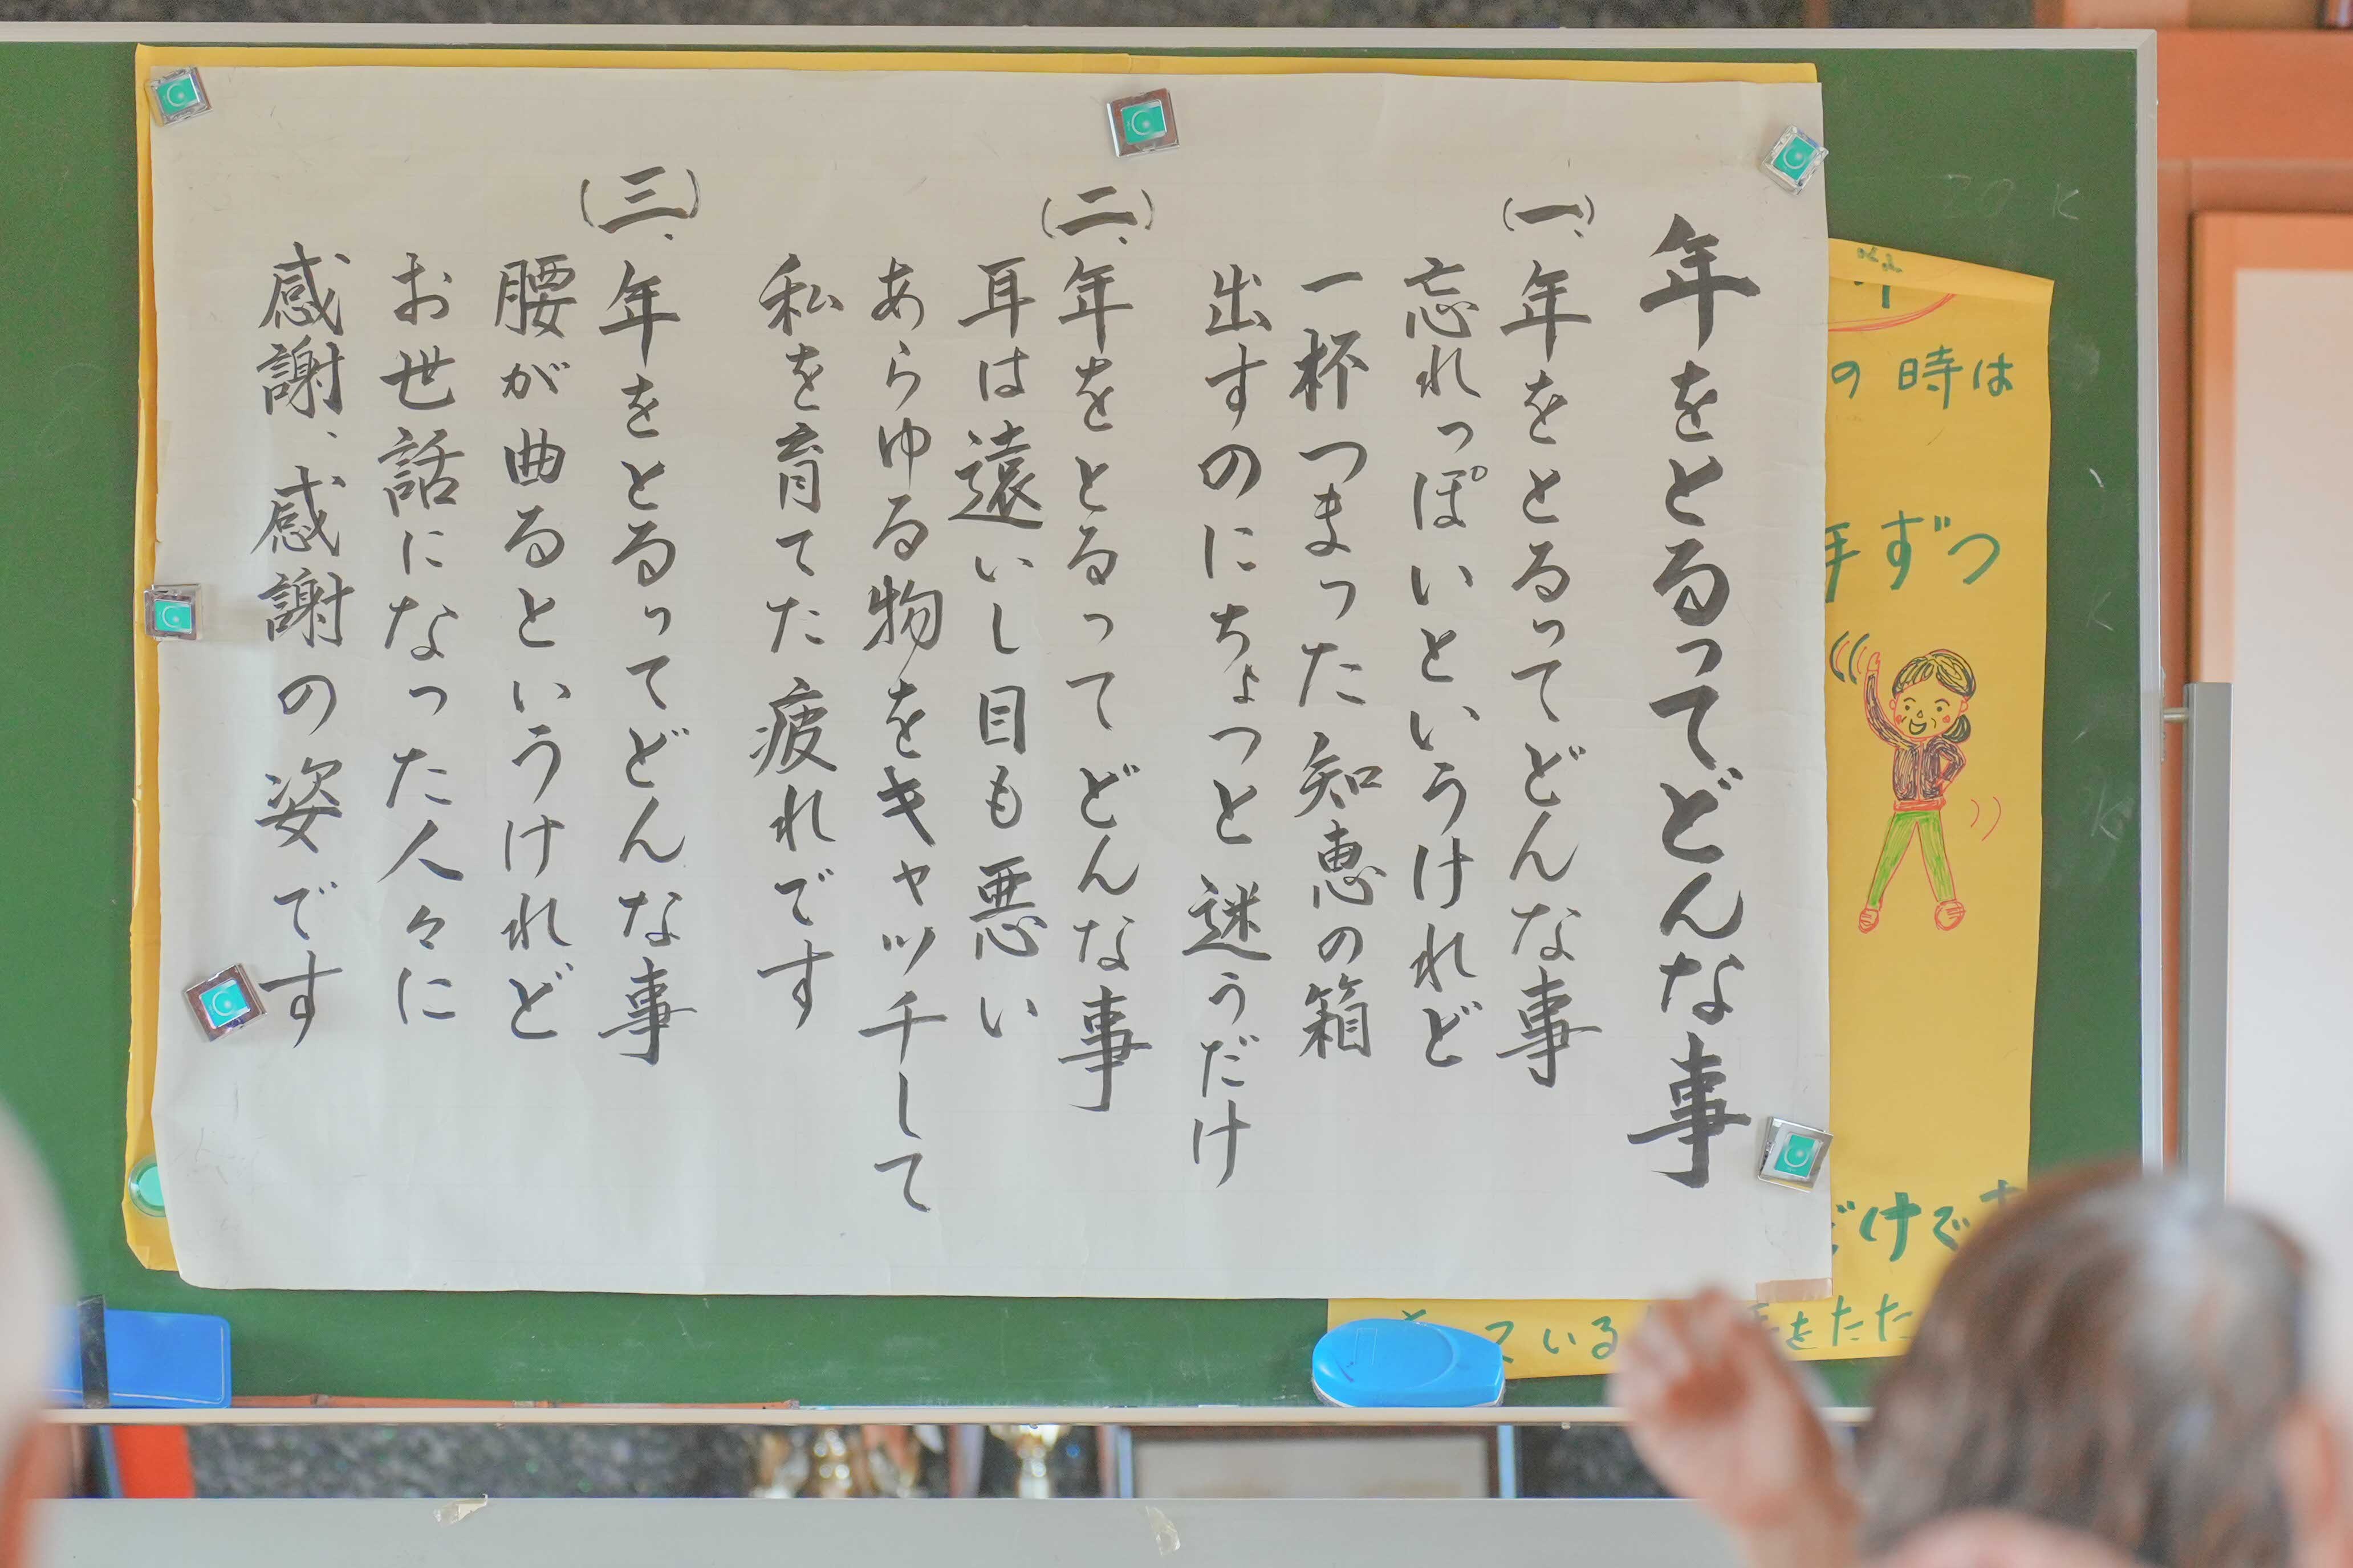 年をとるってどんな事
(一、年をとるってどんな事
忘れっぽいというけれど
一杯つまった知恵の箱
出すのにちょっと謎うだけ
(二、年をとるってどんな事
耳は遠いし目も悪い
あらゆる物をキャッチして
私を育てた疲れです
(三、年をとるってどんな事
腰が曲るというけれど
お世話になった人々に
感謝、感謝の姿です
の時は
手ずつ
だけで
ている
をたた